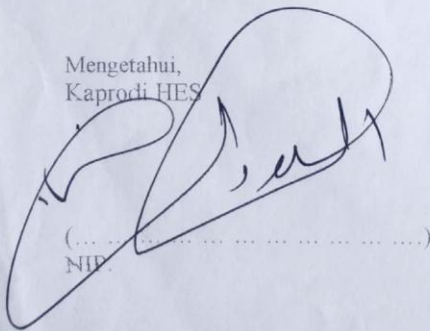 Mengetahui,
Kaprodi HES
(... ... ... ... ... ... ... ... ....)
NIP.